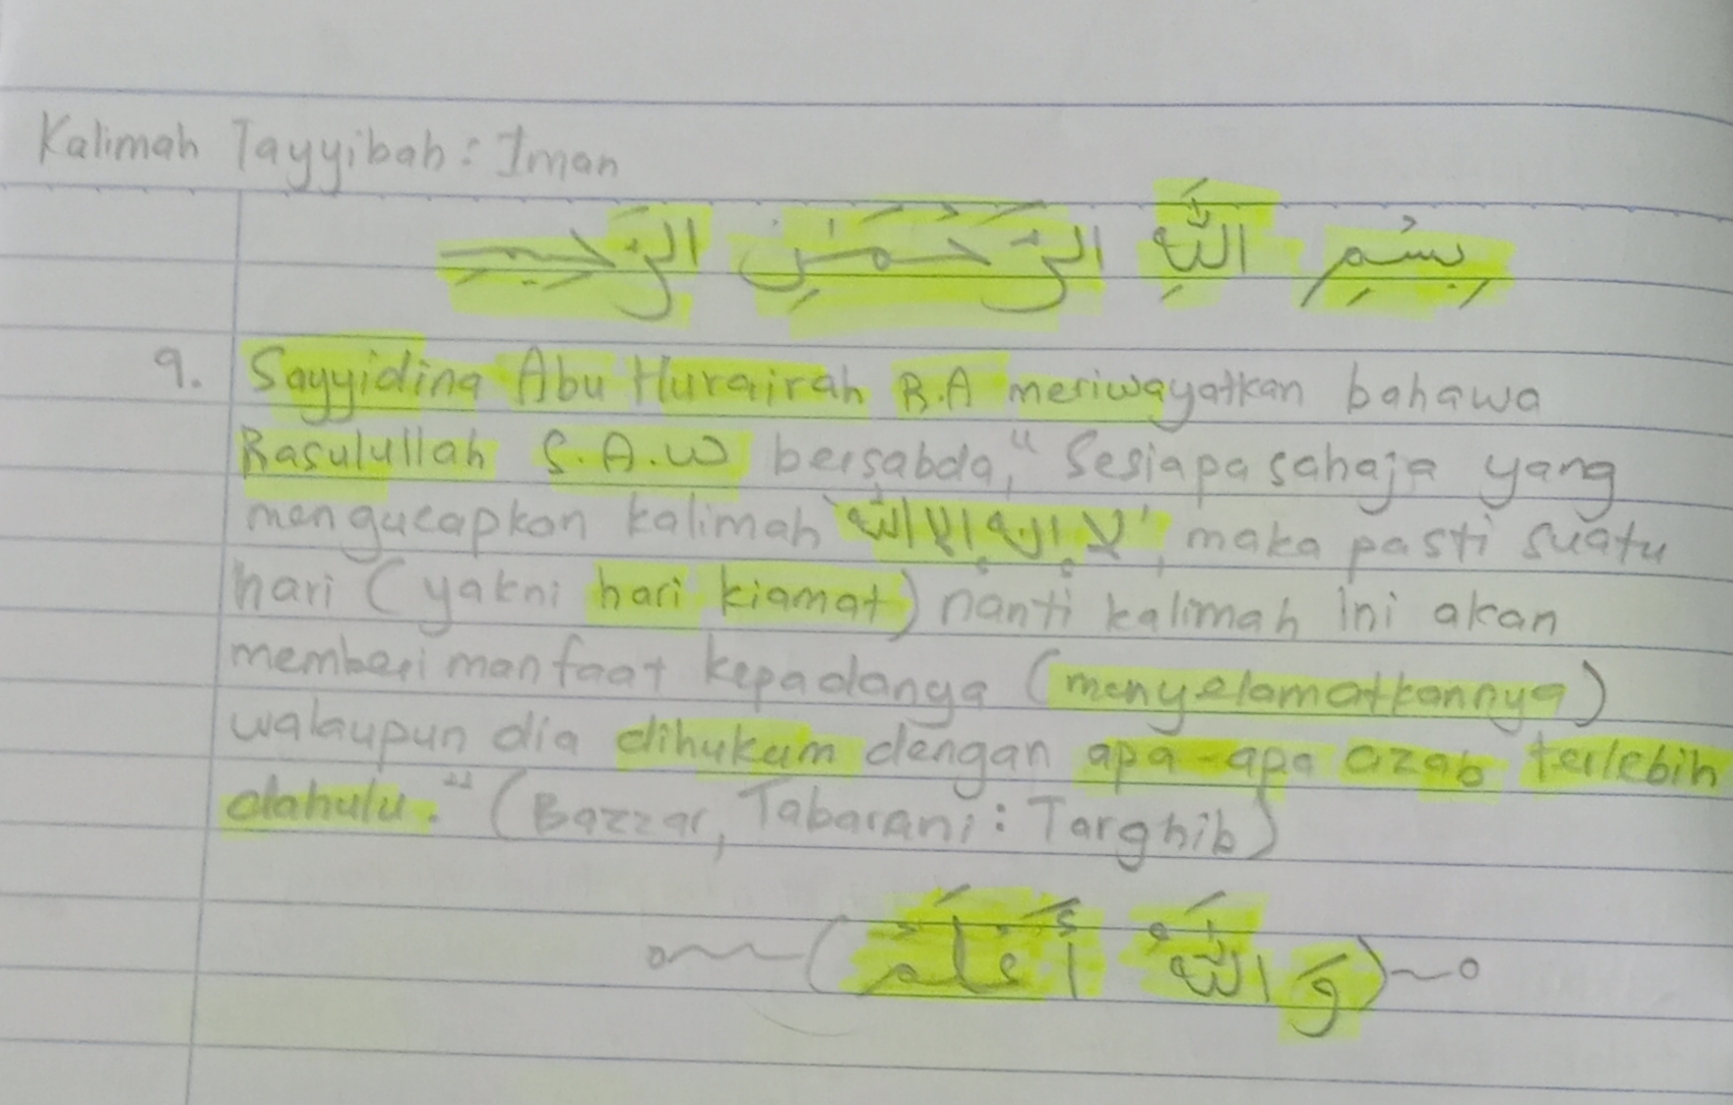 Kalimah Tayyibah : Iman
بِسْمِ اللَّهِ الرَّحْمَٰنِ الرَّحِيمِ
9. Sayyidina Abu Hurairah R.A meriwayatkan bahawa
Rasulullah S.A.W bersabda, "Sesiapa sahaja yang
mengucapkan kalimah 'لا إله إلا الله', maka pasti suatu
hari (yakni hari kiamat) nanti kalimah ini akan
memberi manfaat kepadanya (menyelamatkannya)
walaupun dia dihukum dengan apa-apa azab terlebih
dahulu." (Bazzar, Tabarani : Targhib)
(وَ اللَّهُ أَعْلَمُ)